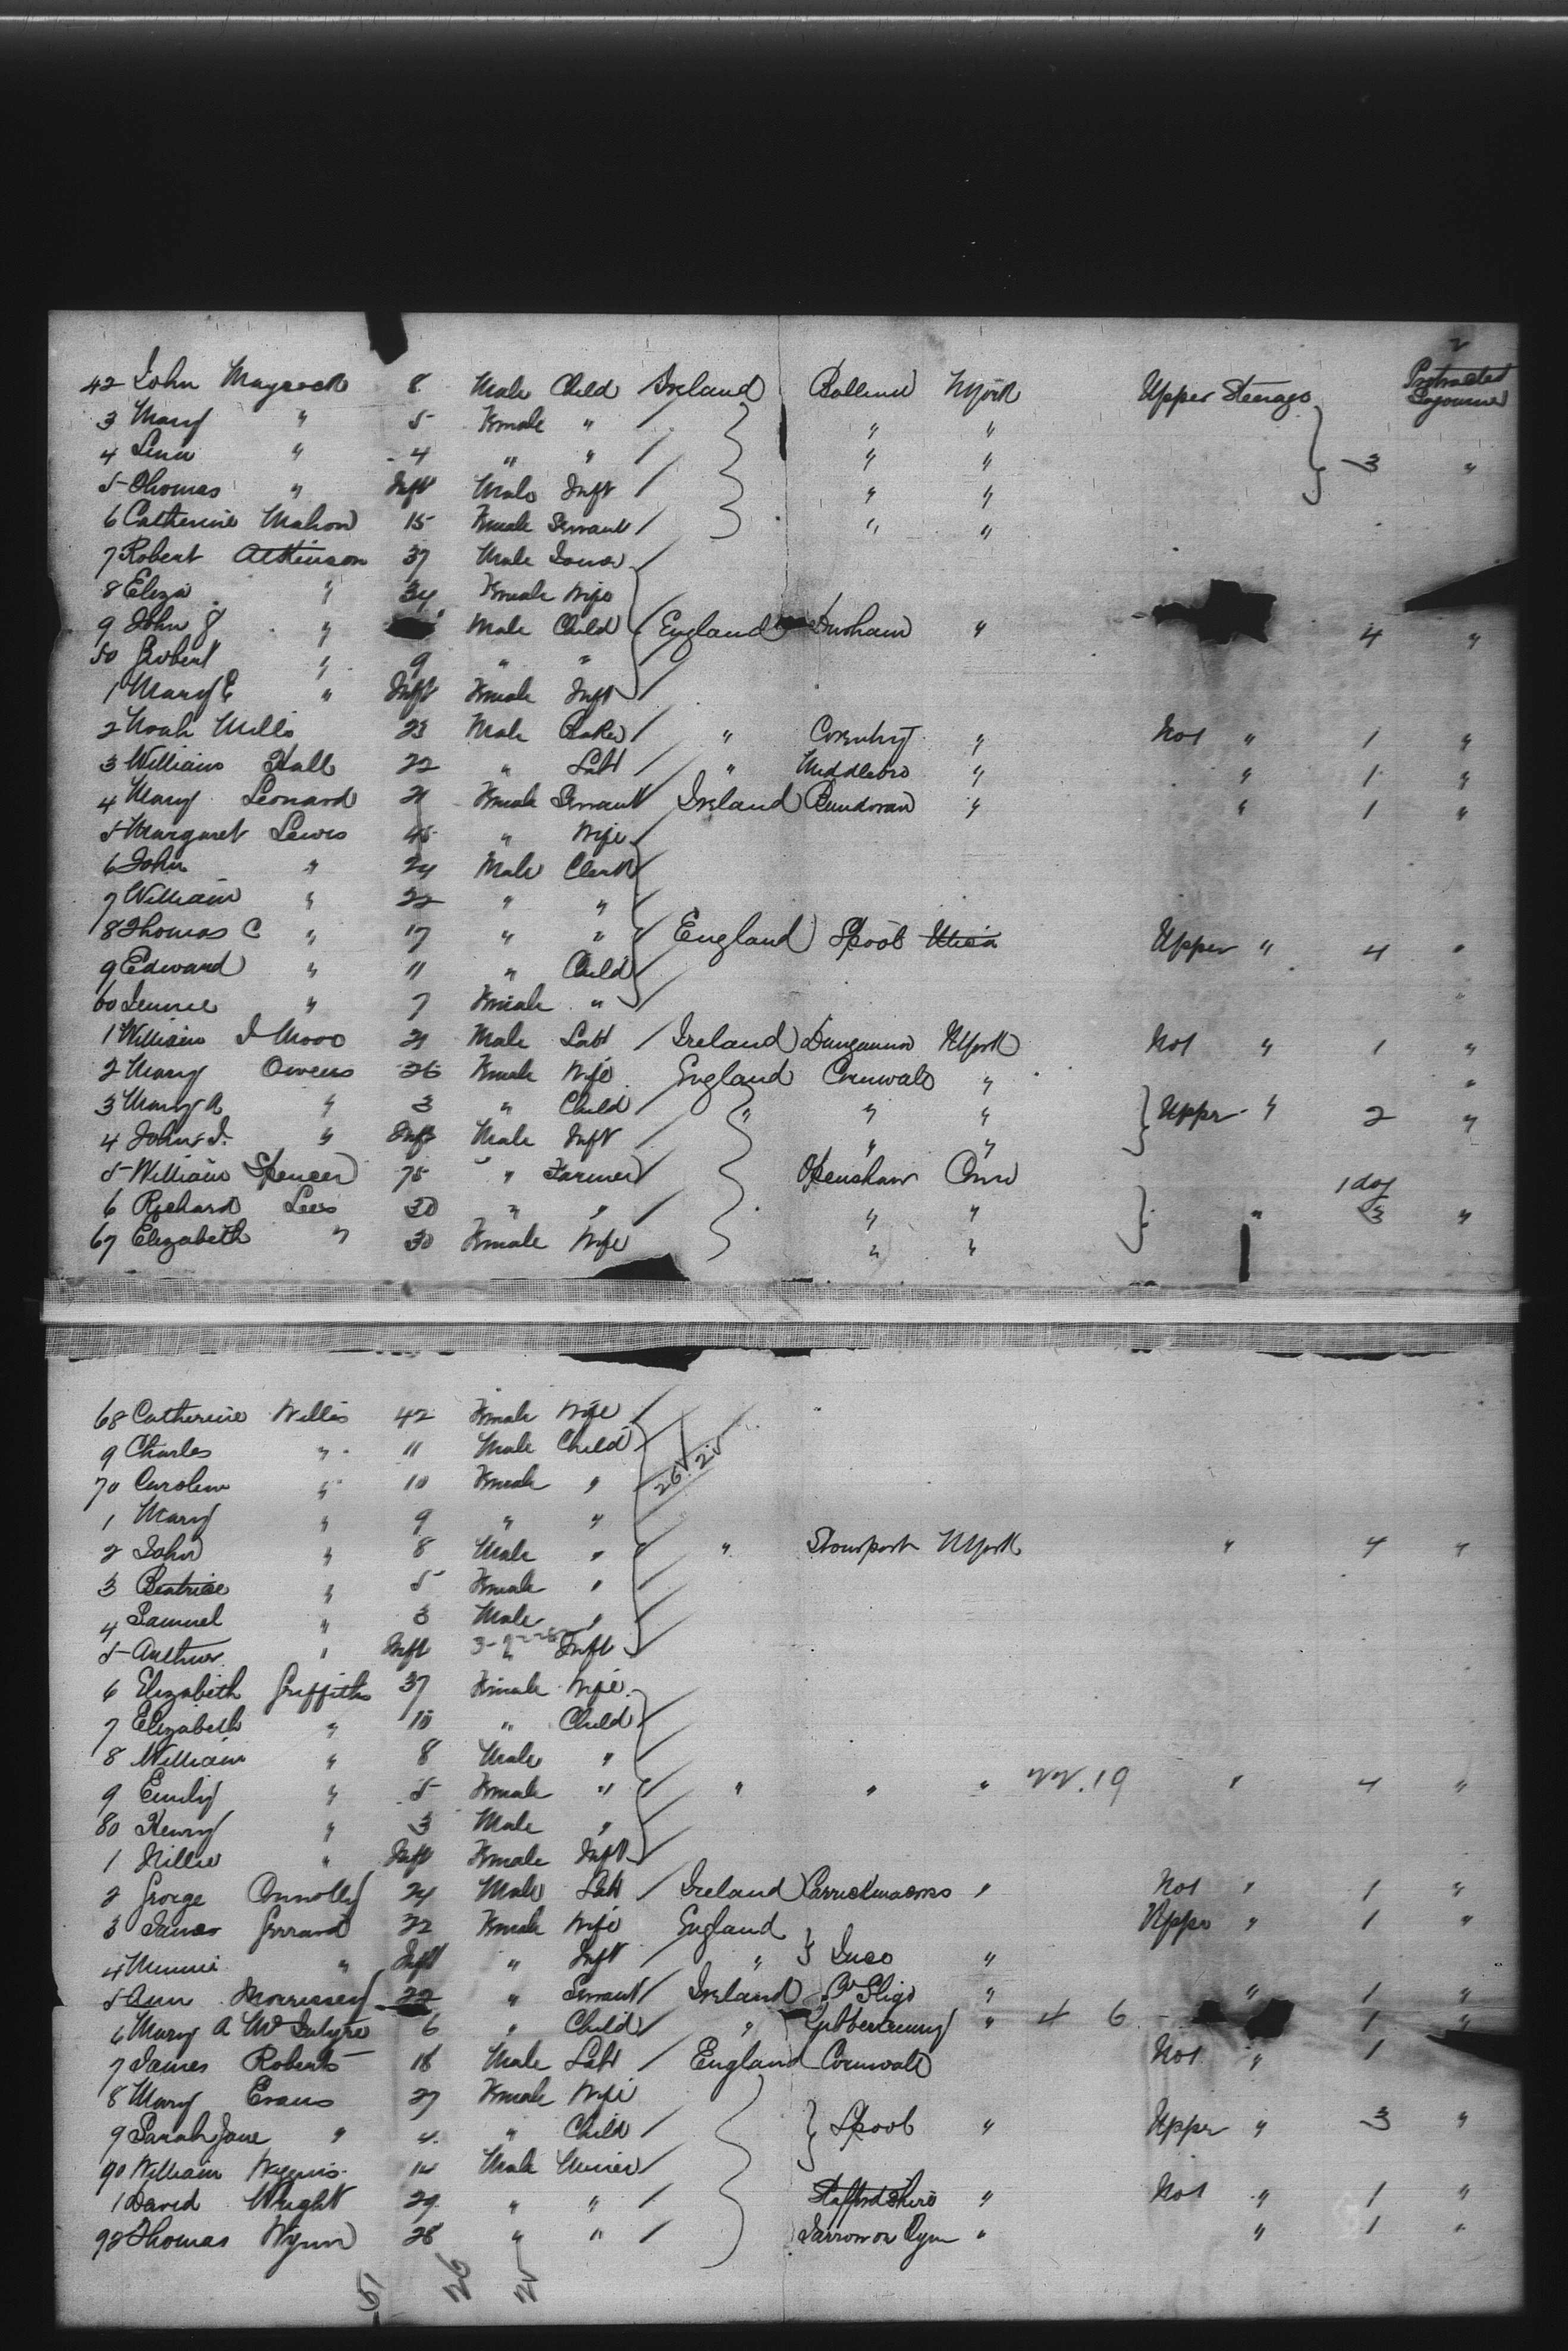 2
Protracted Sojourner
42 John Maycock 8 Male Child Ireland N York Upper Steerage
3 Mary " 5 Female " " "
4 " 4 " " " " 3 "
5 Thomas " Inft Male Inft " "
6 Catherine Mahon 15 Female Servant " "
7 Robert Atkinson 37 Male
8 Eliza " 34 Female Wife
9 John J " Male Child England Durham " 4 "
50 Robert " 9 " "
1 Mary E " Inft Female Inft
2 Noah Mills 23 Male Baker " Coventry " Not " 1 "
3 William Hall 22 " Labr " Middlesbro " " 1 "
4 Mary Leonard 21 Female Servant Ireland Bundoran " " 1 "
5 Margaret Lewis 45 " Wife
6 John " 24 Male Clerk
7 William " 22 " "
8 Thomas C " 17 " " England Lpool Utica Upper " 4 "
9 Edward " 11 " Child
60 Jennie " 7 Female " "
1 William J Moore 21 Male Labr Ireland Dungannon N York Not " 1 "
2 Mary Owens 26 Female Wife England Cornwall " "
3 Mary A " 3 " Child " " " Upper " 2 "
4 John J. " Inft Male Inft " "
5 William Spencer 75 " Farmer Openshaw 1 day
6 Richard Lees 30 " " " " " 3 "
67 Elizabeth " 30 Female Wife " "
68 Catherine Willis 42 Female Wife
9 Charles " 11 Male Child
70 Carolin " 10 Female "
1 Mary " 9 " "
2 John " 8 Male " " Stourport N York " 4 "
3 Beatrice " 5 Female "
4 Samuel " 3 Male "
5 Arthur " Inft " Inft
6 Elizabeth Griffiths 37 Female Wife
7 Elizabeth " 10 " Child
8 William " 8 Male "
9 Emily " 5 Female " " " " " 4 "
80 Henry " 3 Male "
1 Nillie " Inft Female Inft
2 George Connolly 24 Male Labr Ireland " Not " 1 "
3 Gerrard 22 Female Wife England Upper " 1 "
4 Minnie " Inft " Inft " Ince "
5 Ann Morrissey 22 " Servant Ireland Co Sligo " " 1 "
6 Mary A McIntyre 6 " Child " " 4 6 1 "
7 James Roberts 18 Male Labr England Cornwall Not " 1
8 Mary Evans 27 Female Wife
9 Sarah Jane " 4 " Child Lpool " Upper " 3 "
90 William 14 Male Miner
1 David Wright 29 " " Staffordshire " Not " 1 "
92 Thomas Wynn 28 " " Jarrow on Tyne " " 1 "